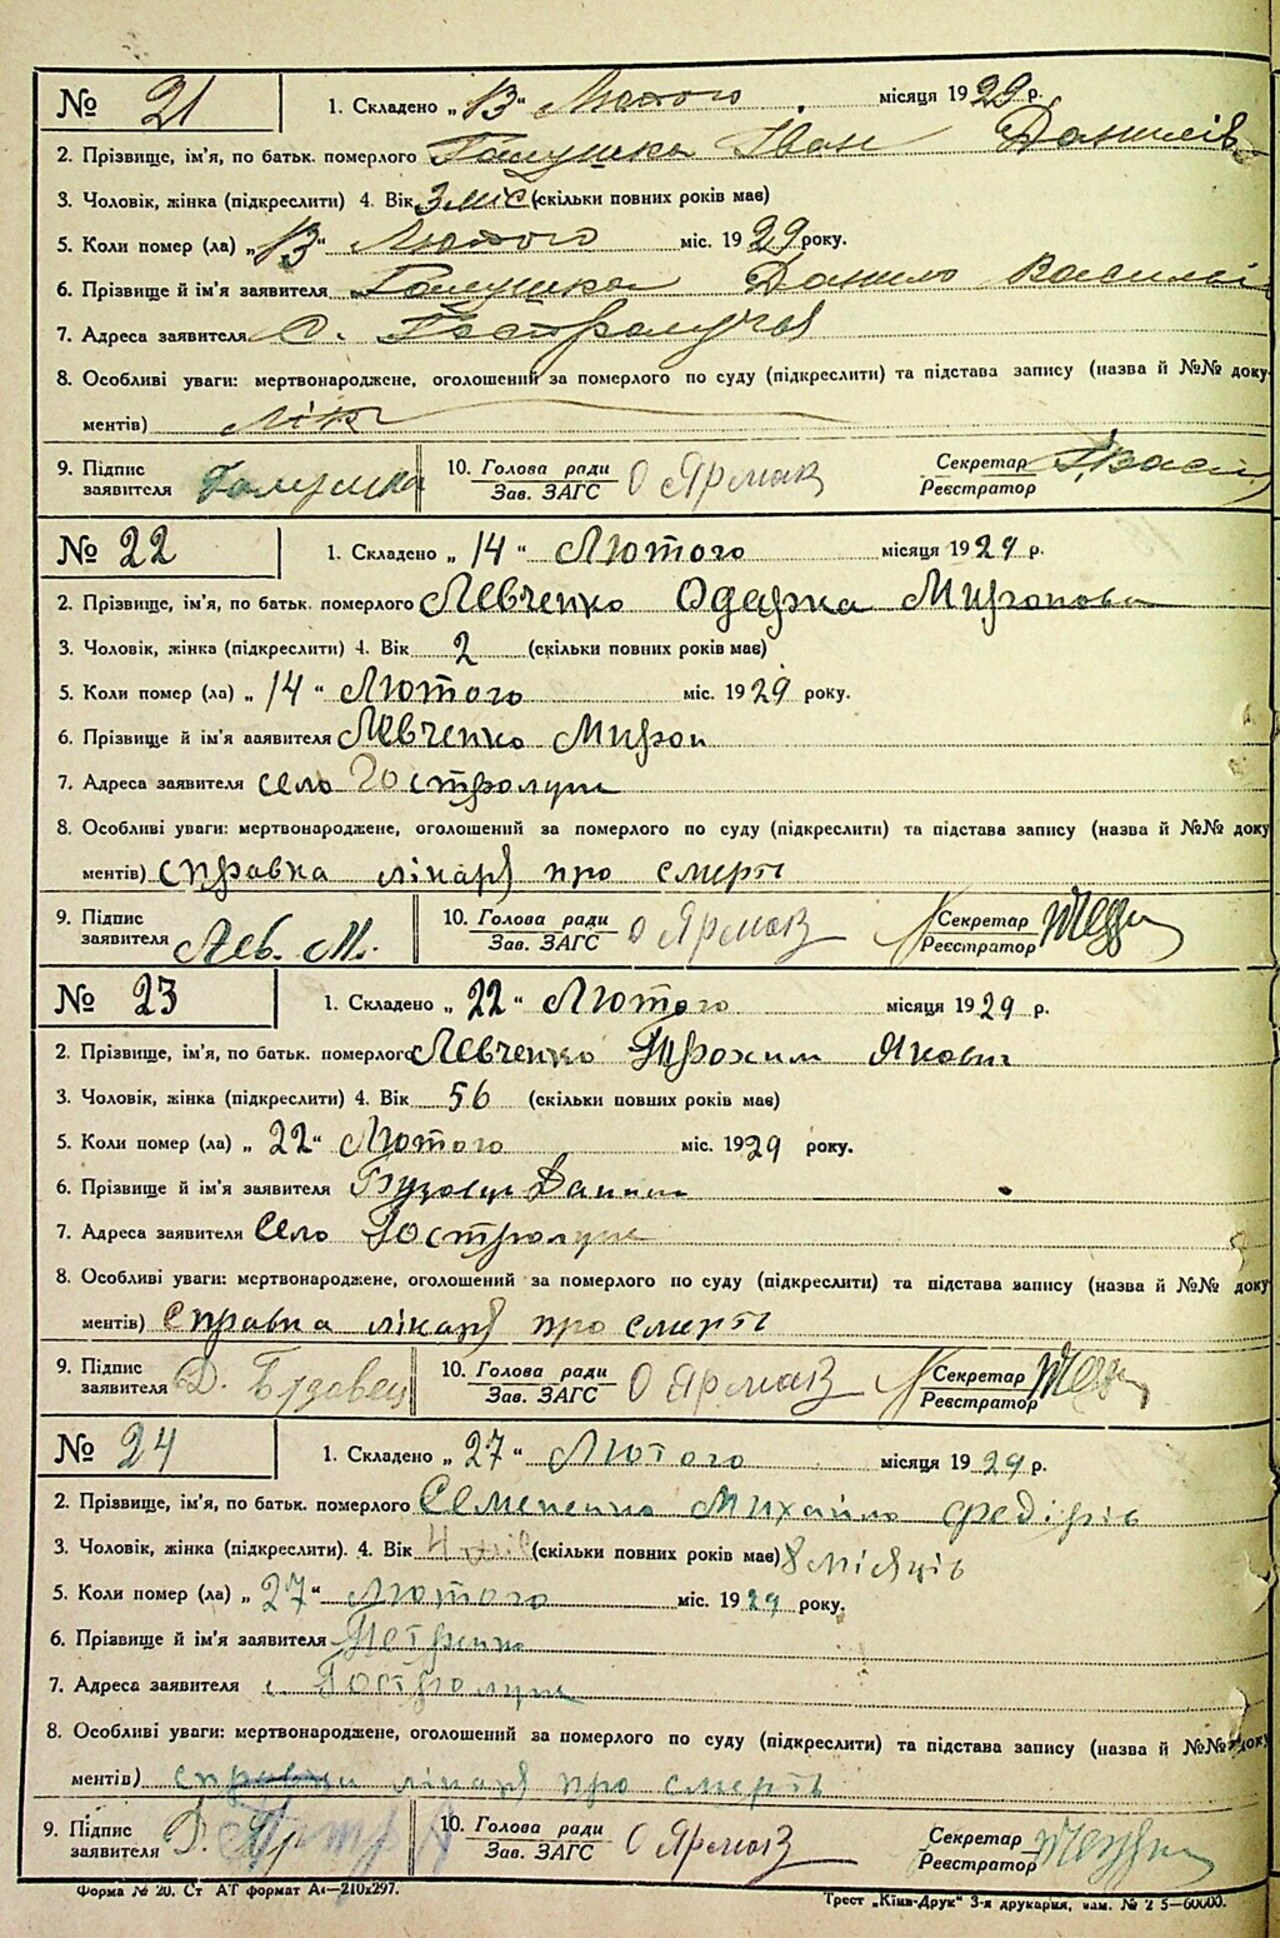 № 21 1. Складено „13“ Лютого місяця 1929 р.
2. Прізвище, ім'я, по батьк. померлого Галушка Іван Данилів
3. Чоловік, жінка (підкреслити) 4. Вік 3 міс (скільки повних років має)
5. Коли помер (ла) „13“ Лютого міс. 1929 року.
6. Прізвище й ім'я заявителя Галушка Данило Васильів
7. Адреса заявителя С. Гостролуччя
8. Особливі уваги: мертвонароджене, оголошений за померлого по суду (підкреслити) та підстава запису (назва й №№ доку-
ментів) Лік
9. Підпис заявителя Галушка 10. Голова ради Зав. ЗАГС О Ярмак Секретар Реєстратор
№ 22 1. Складено „14“ Лютого місяця 1929 р.
2. Прізвище, ім'я, по батьк. померлого Левченко Одарка Миронова
3. Чоловік, жінка (підкреслити) 4. Вік 2 (скільки повних років має)
5. Коли помер (ла) „14“ Лютого міс. 1929 року.
6. Прізвище й ім'я заявителя Левченко Мирон
7. Адреса заявителя село Гостролуче
8. Особливі уваги: мертвонароджене, оголошений за померлого по суду (підкреслити) та підстава запису (назва й №№ доку
ментів) справка лікаря про смерть
9. Підпис заявителя Лев. М. 10. Голова ради Зав. ЗАГС О Ярмак Секретар Реєстратор
№ 23 1. Складено „22“ Лютого місяця 1929 р.
2. Прізвище, ім'я, по батьк. померлого Левченко Трохим Якович
3. Чоловік, жінка (підкреслити) 4. Вік 56 (скільки повних років має)
5. Коли помер (ла) „22“ Лютого міс. 1929 року.
6. Прізвище й ім'я заявителя Бузовец Данило
7. Адреса заявителя Село Гостролуче
8. Особливі уваги: мертвонароджене, оголошений за померлого по суду (підкреслити) та підстава запису (назва й №№ доку
ментів) справка лікаря про смерть
9. Підпис заявителя Д. Бузовец 10. Голова ради Зав. ЗАГС О Ярмак Секретар Реєстратор
№ 24 1. Складено „27“ Лютого місяця 1929 р.
2. Прізвище, ім'я, по батьк. померлого Семененко Михайло Федірів
3. Чоловік, жінка (підкреслити). 4. Вік (скільки повних років має) 8 місяців
5. Коли помер (ла) „27“ Лютого міс. 1929 року.
6. Прізвище й ім'я заявителя Петренко
7. Адреса заявителя с. Гостролуче
8. Особливі уваги: мертвонароджене, оголошений за померлого по суду (підкреслити) та підстава запису (назва й №№ доку
ментів) справки лікаря про смерть
9. Підпис заявителя 10. Голова ради Зав. ЗАГС О Ярмак Секретар Реєстратор
Форма № 20. Ст АТ формат А4—210х297. Трест „Київ-Друк“ 3-я друкарня, зам. № 2 5—60000.